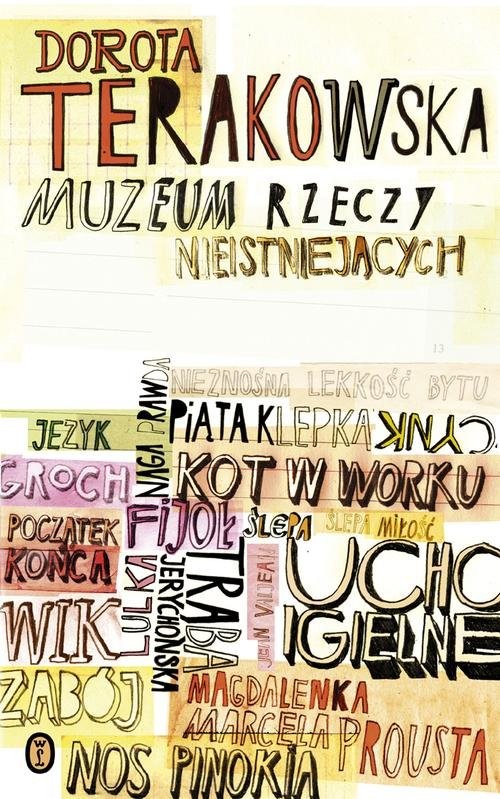 DOROTA
TERAKOWSKA
MUZEUM RZECZY
NIEISTNIEJĄCYCH
13
NIEZNOŚNA LEKKOŚĆ BYTU
NAGA PRAWDA
PIĄTA KLEPKA
CYNK
JĘZYK
GROCH
KOT W WORKU
POCZĄTEK
KOŃCA
FIJOŁ
ŚLEPA
ŚLEPA MIŁOŚĆ
LULKA
TRĄBA
JERYCHOŃSKA
JEAN VALJEAN
UCHO
IGIELNE
WIK
ZABÓJ
MAGDALENKA
MARCELA PROUSTA
NOS PINOKIA
W
L